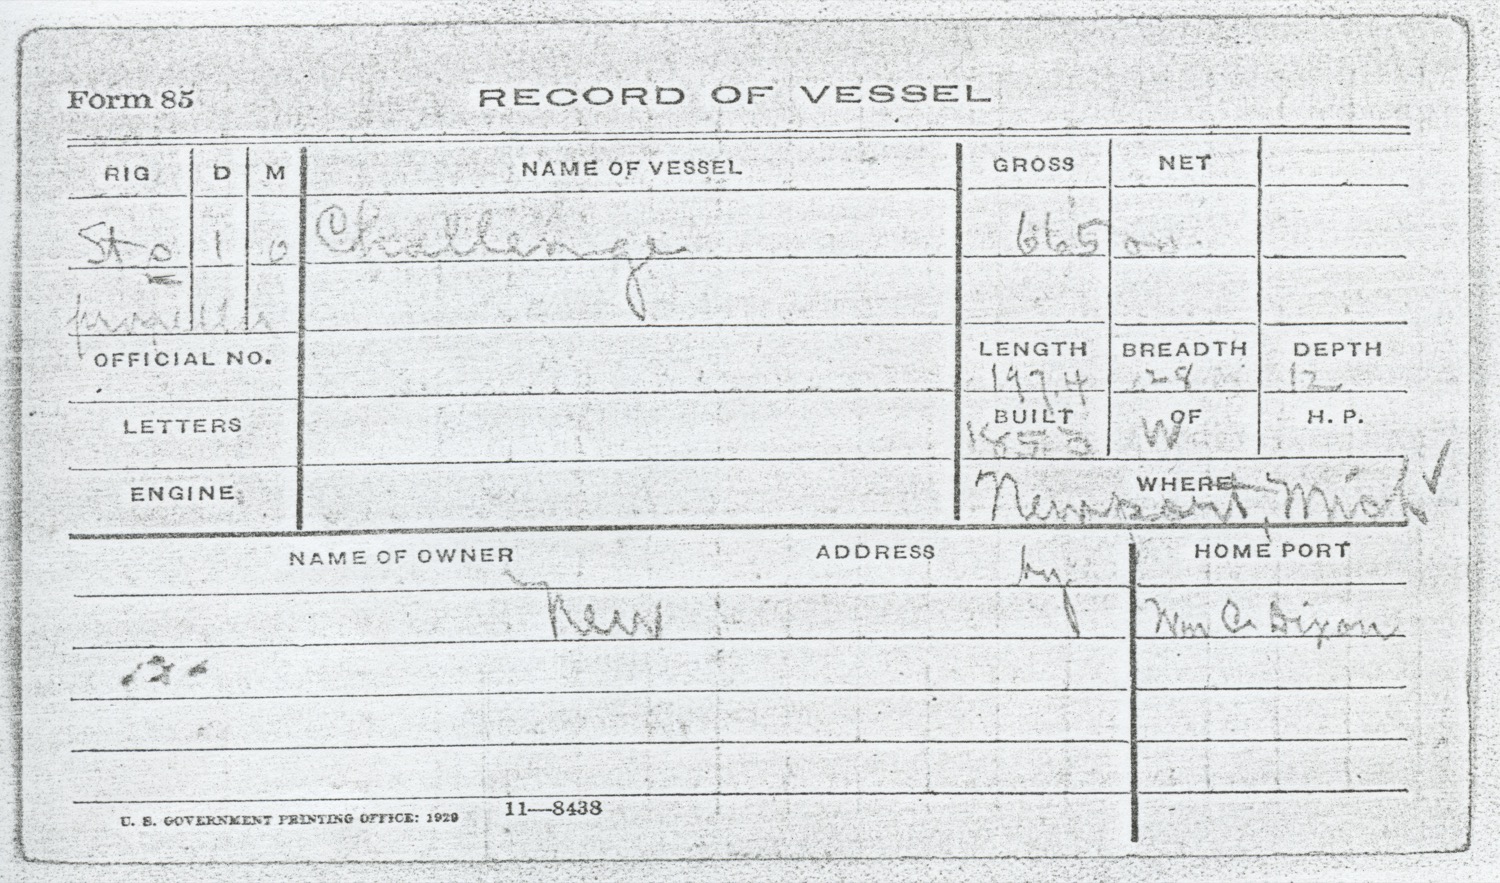 Form 85 RECORD OF VESSEL
RIG D M NAME OF VESSEL GROSS NET
St o 1 0 Challenge 665 on
propeller
OFFICIAL NO. LENGTH BREADTH DEPTH
197.4 28 12
LETTERS BUILT OF H. P.
1853 W
ENGINE WHERE
Newport, Mich ✓
NAME OF OWNER ADDRESS by HOME PORT
New Wm C Dixon
U. S. GOVERNMENT PRINTING OFFICE: 1929 11—8438